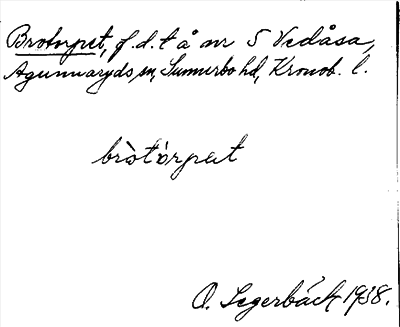 Brotorpet, f.d. t å nr 5 Vedåsa,
Agunnaryds sn, Sunnerbo hd, Kronob. l.
bròtòrpet
O. Segerbäck 1938.